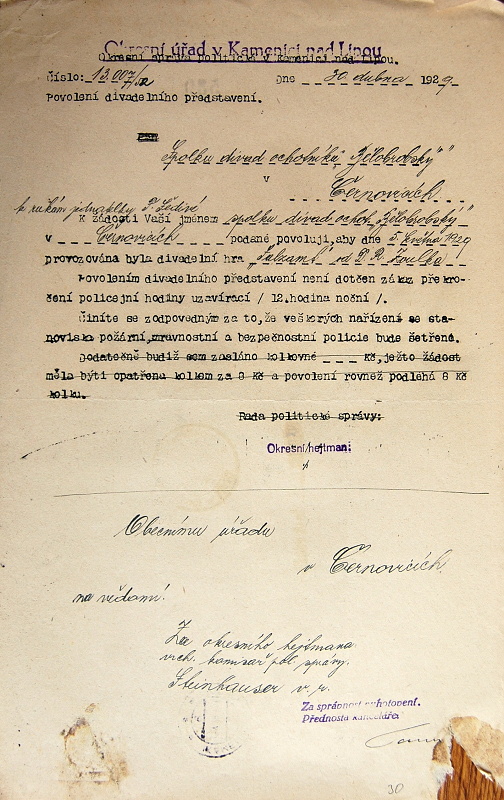 Okresní úřad v Kamenici nad Lipou
Okresní správa politická v Kamenici nad Lipou.
Číslo: 13.007/ Dne 30. dubna 1929.
Povolení divadelního představení.
Spolku divad. ochotníků „Bělobrobský"
v
Černovicích
k rukám jednatelky
K žádosti Vaší jménem spolku divad. ochot. „Bělobrobský"
v Černovicích podané povoluji, aby dne 5. května 1929
provozována byla divadelní hra „ od
Povolením divadelního představení není dotčen zákaz překro-
čení policejní hodiny uzavírací / 12.hodina noční /.
Činíte se zodpovědným za to, že veškerých nařízení se sta-
noviska požární, mravnostní a bezpečnostní policie bude šetřeno.
Dodatečně budiž sem zasláno kolkovné Kč, ježto žádost
měla býti opatřena kolkem za 8 Kč a povolení rovněž podléhá 8 Kč
kolku.
Rada politické správy:
Okresní hejtman:
Obecnímu úřadu
v Černovicích
na vědomí!
Za okresního hejtmana
vrch. komisař pol. správy.
Steinhauser v. r.
Za správnost vyhotovení.
Přednosta kanceláře:
30